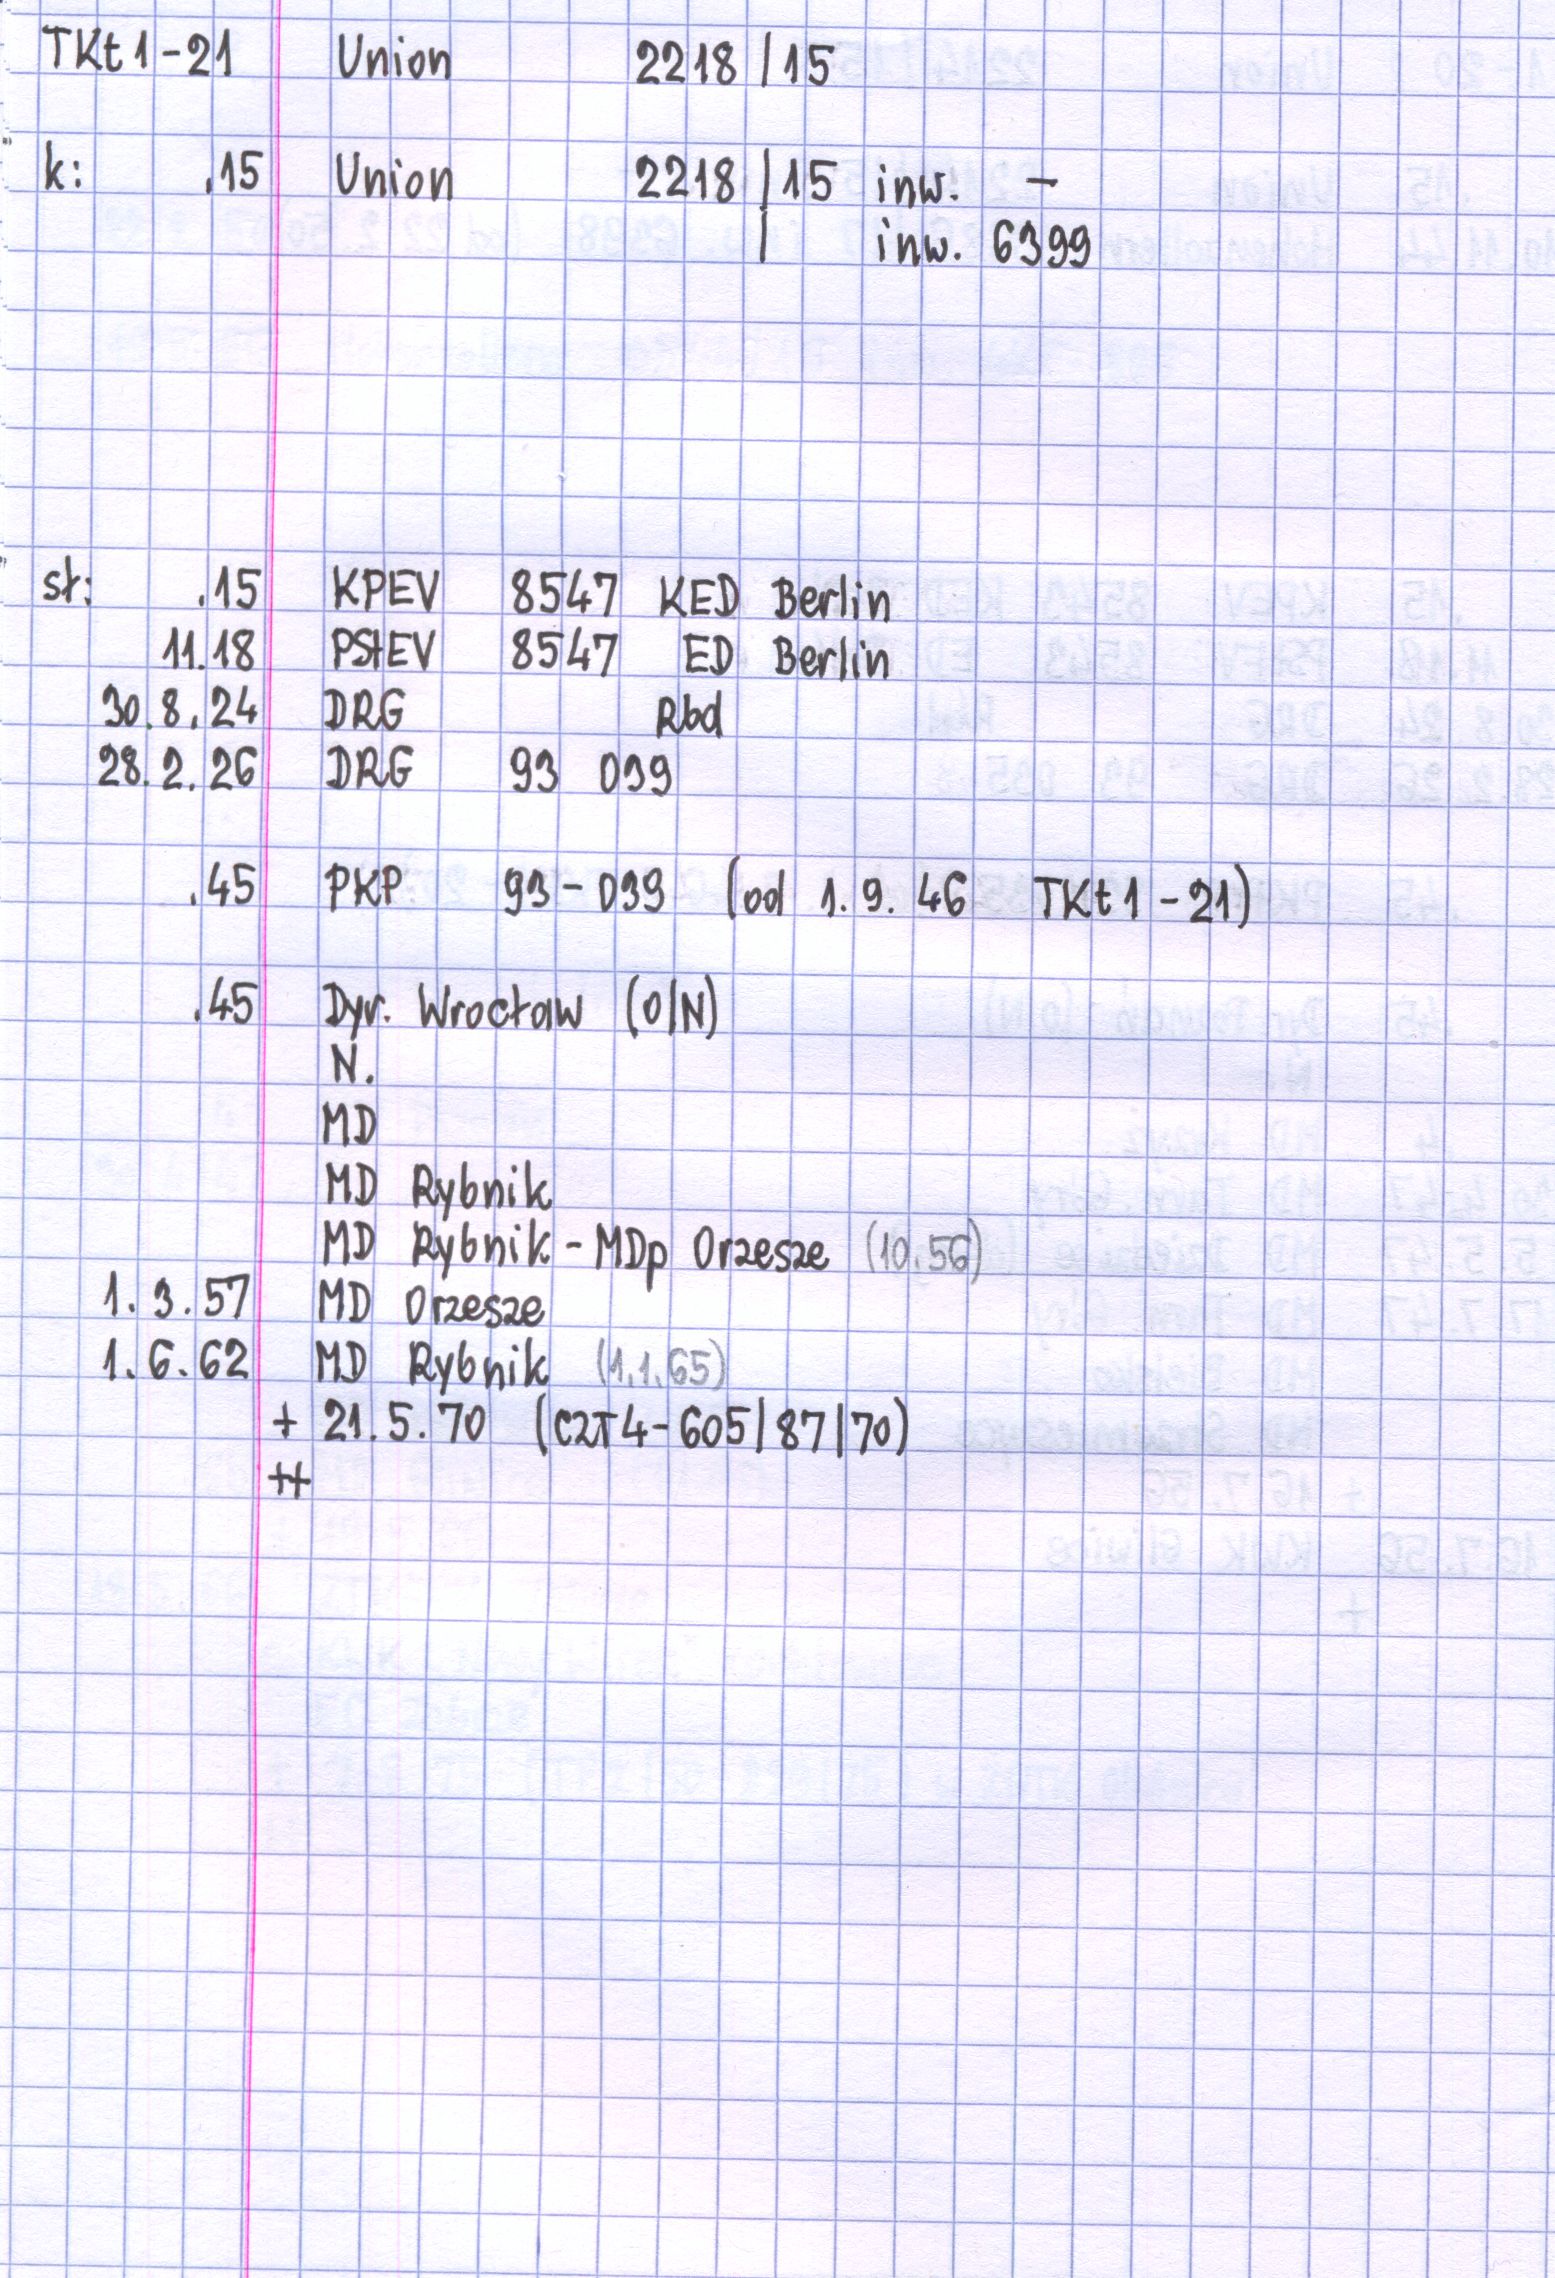 TKt1-21 Union 2218/15
k: .15 Union 2218/15 inw. -
/ inw. 6399
st: .15 KPEV 8547 KED Berlin
11.18 PStEV 8547 ED Berlin
30.8.24 DRG Rbd
28.2.26 DRG 93 039
.45 PKP 93-039 (od 1.9.46 TKt1-21)
.45 Dyr. Wrocław (O/N)
N.
MD
MD Rybnik
MD Rybnik-MDp Orzesze (10.56)
1.3.57 MD Orzesze
1.6.62 MD Rybnik (1.1.65)
+ 21.5.70 (CZT4-605/87/70)
++